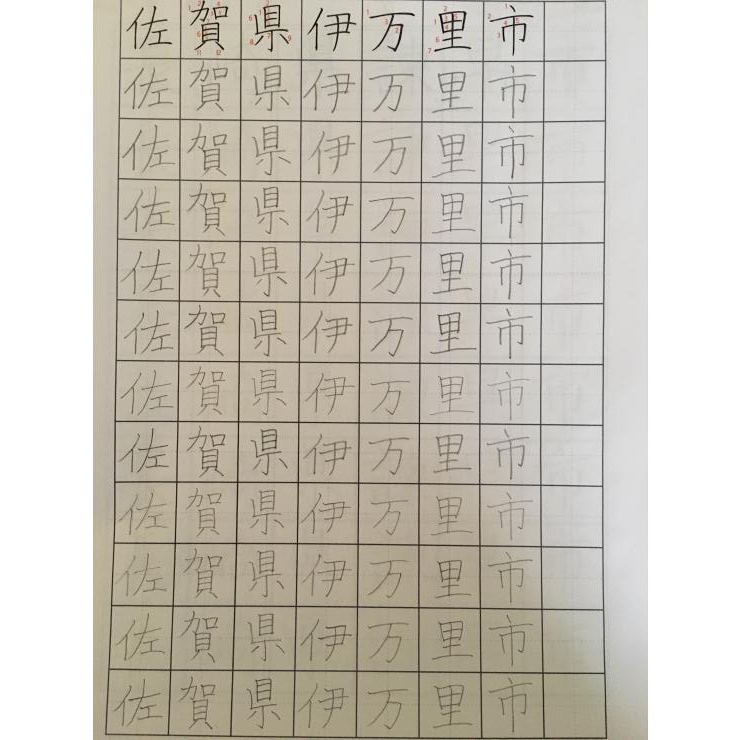 佐賀県伊万里市
佐賀県伊万里市
佐賀県伊万里市
佐賀県伊万里市
佐賀県伊万里市
佐賀県伊万里市
佐賀県伊万里市
佐賀県伊万里市
佐賀県伊万里市
佐賀県伊万里市
佐賀県伊万里市
佐賀県伊万里市